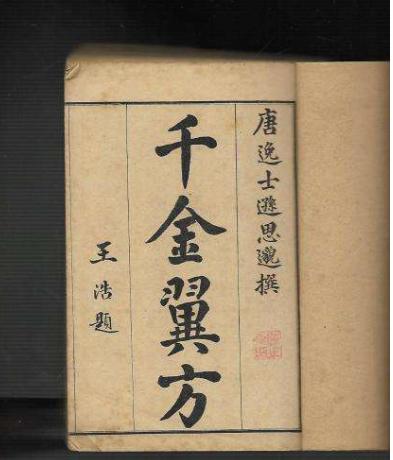 唐逸士遜思邈撰
千金翼方
王浩題